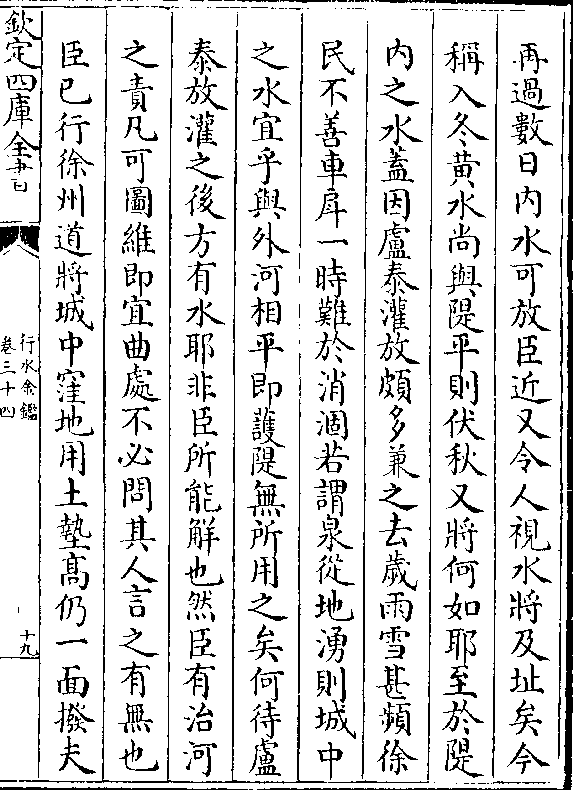 再過數日内水可放臣近又令人視水將及址矣今
稱入冬黄水尚與隄平則伏秋又將何如耶至於隄
内之水蓋因盧泰灌放頗多兼之去歲雨雪甚頻徐
民不善車戽一時難於消涸若謂泉從地湧則城中
之水宜乎與外河相平即護隄無所用之矣何待盧
泰放灌之後方有水耶非臣所能解也然臣有治河
之責凡可圖維即宜曲處不必問其人言之有無也
臣已行徐州道將城中窪地用土墊高仍一面撥夫
欽定四庫全書
行水金鑑
卷三十四
十九